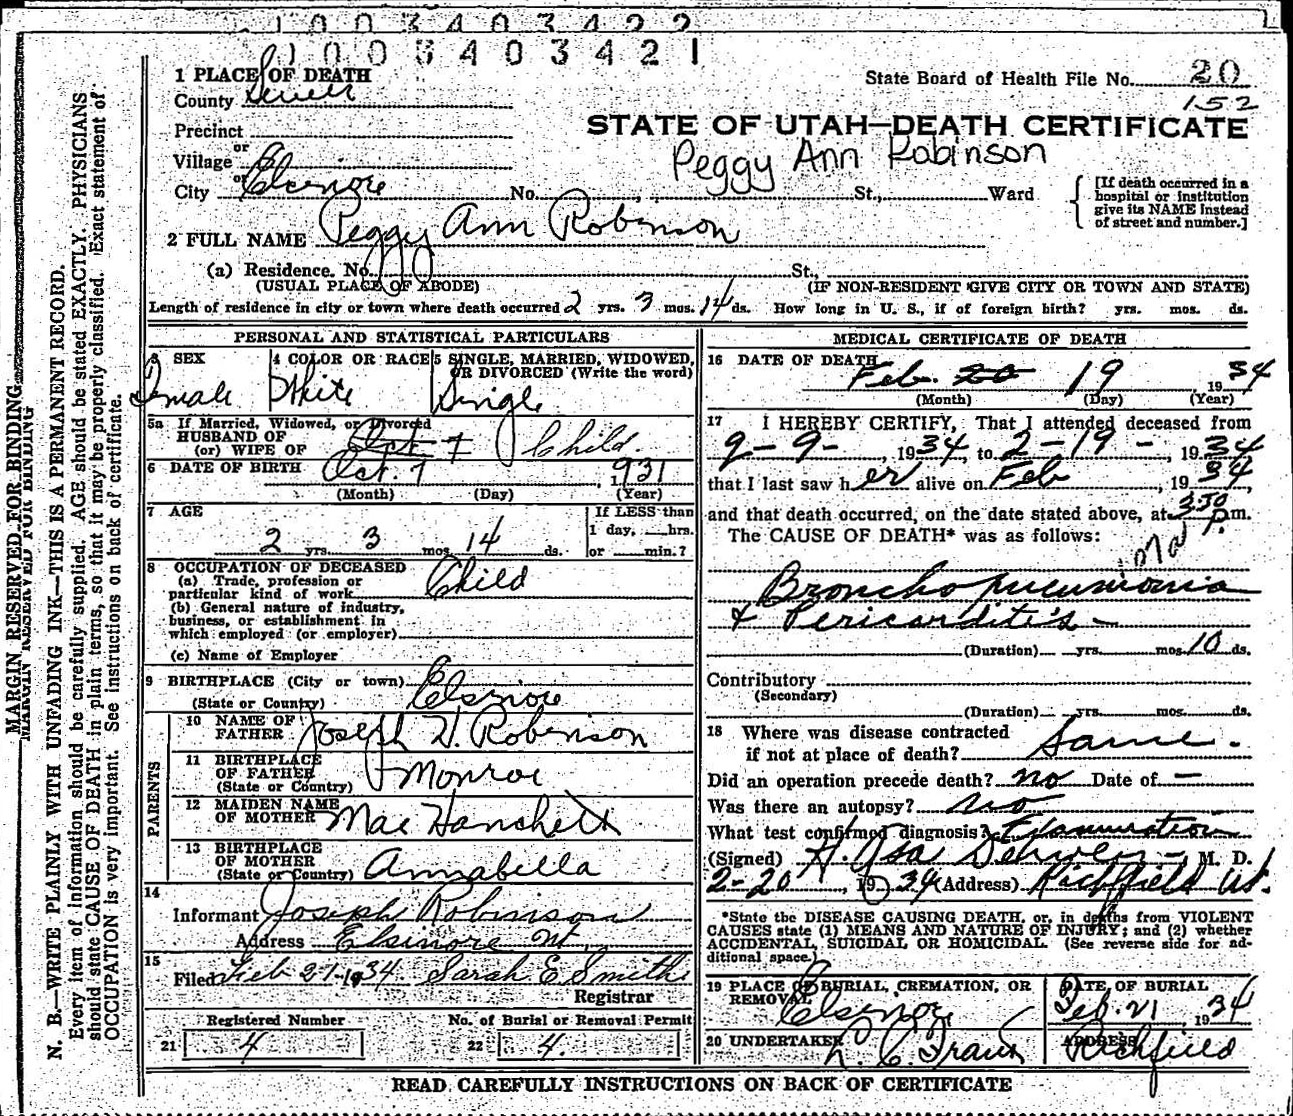 1003403422
1003403421
1 PLACE OF DEATH
County Sevier
State Board of Health File No. 20
152
Precinct
or
Village
or
City Elsinore No. St., Ward
STATE OF UTAH—DEATH CERTIFICATE
Peggy Ann Robinson
[If death occurred in a
hospital or institution
give its NAME instead
of street and number.]
2 FULL NAME Peggy Ann Robinson
(a) Residence. No. St.,
(USUAL PLACE OF ABODE) (IF NON-RESIDENT GIVE CITY OR TOWN AND STATE)
Length of residence in city or town where death occurred 2 yrs. 3 mos. 14 ds. How long in U. S., if of foreign birth? yrs. mos. ds.
PERSONAL AND STATISTICAL PARTICULARS
3 SEX
Female
4 COLOR OR RACE
White
5 SINGLE, MARRIED, WIDOWED,
OR DIVORCED (Write the word)
Single
5a If Married, Widowed, or Divorced
HUSBAND OF
(or) WIFE OF Oct 7 Child.
6 DATE OF BIRTH Oct. 7, 1931
(Month) (Day) (Year)
7 AGE
2 yrs. 3 mos. 14 ds.
If LESS than
1 day, hrs.
or min.?
8 OCCUPATION OF DECEASED
(a) Trade, profession or
particular kind of work Child
(b) General nature of industry,
business, or establishment in
which employed (or employer)
(c) Name of Employer
9 BIRTHPLACE (City or town) Elsinore
(State or Country)
PARENTS
10 NAME OF
FATHER Joseph H. Robinson
11 BIRTHPLACE
OF FATHER Monroe
(State or Country)
12 MAIDEN NAME
OF MOTHER Mae Hanchett
13 BIRTHPLACE
OF MOTHER Annabella
(State or Country)
14
Informant Joseph Robinson
Address Elsinore Ut.
15
Filed Feb 21 1934 Sarah E Smith
Registrar
Registered Number
21 4
No. of Burial or Removal Permit
22 4.
MEDICAL CERTIFICATE OF DEATH
16 DATE OF DEATH
Feb. 20 19, 1934
(Month) (Day) (Year)
17 I HEREBY CERTIFY, That I attended deceased from
2-9-, 1934, to 2-19-, 1934
that I last saw her alive on Feb, 1934,
and that death occurred, on the date stated above, at 3:50 P.m.
The CAUSE OF DEATH* was as follows:
Bronchopneumonia
& Pericarditis -
(Duration) yrs. mos. 10 ds.
Contributory
(Secondary)
(Duration) yrs. mos. ds.
18 Where was disease contracted
if not at place of death? Same.
Did an operation precede death? no Date of —
Was there an autopsy? no
What test confirmed diagnosis? Examination
(Signed) H. Asa Dewey, M. D.
2-20, 1934 (Address) Richfield Ut.
*State the DISEASE CAUSING DEATH, or, in deaths from VIOLENT
CAUSES state (1) MEANS AND NATURE OF INJURY; and (2) whether
ACCIDENTAL, SUICIDAL OR HOMICIDAL. (See reverse side for ad-
ditional space.)
19 PLACE OF BURIAL, CREMATION, OR
REMOVAL Elsinore
DATE OF BURIAL
Feb. 21, 1934
20 UNDERTAKER
ADDRESS
Richfield
READ CAREFULLY INSTRUCTIONS ON BACK OF CERTIFICATE
MARGIN RESERVED FOR BINDING
MARGIN RESERVED FOR BINDING
N. B.—WRITE PLAINLY WITH UNFADING INK—THIS IS A PERMANENT RECORD.
Every item of information should be carefully supplied. AGE should be stated EXACTLY. PHYSICIANS
should state CAUSE OF DEATH in plain terms, so that it may be properly classified. Exact statement of
OCCUPATION is very important. See instructions on back of certificate.